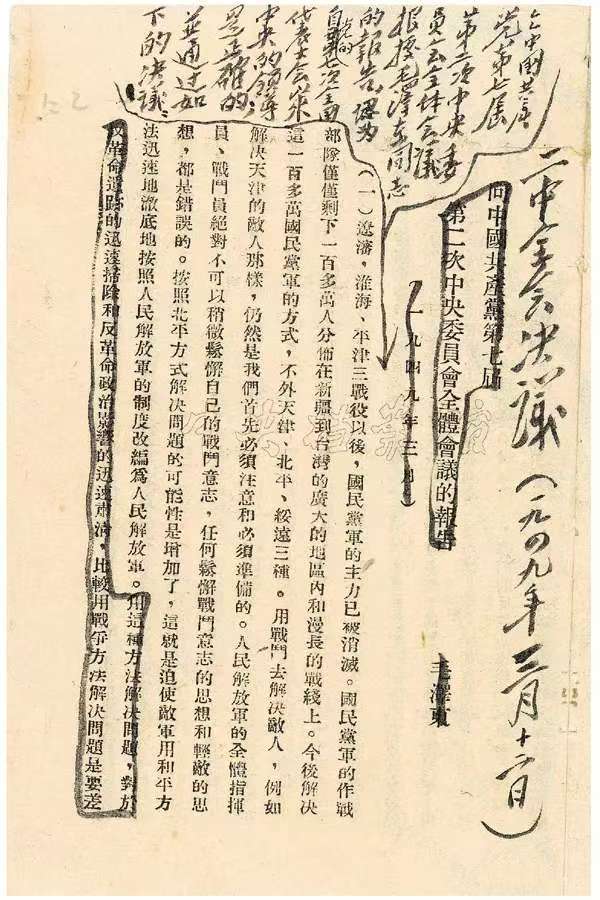 二中全会决議（一九四九年三月十二日）
向中國共產黨第七屆
第二次中央委員會全體會議的報告
一九四九年三月
毛澤東
中國共产
党第七届
第二次中央委
員会全体会議
根據毛澤东同志
的報告，認为
自党的第七次全国
代表大会以来
中央的領導
是正確的
並通过如
下的决議：
（一）遼瀋，淮海，平津三戰役以後，國民黨軍的主力已被消滅。國民黨軍的作戰
部隊僅僅剩下一百多萬人分佈在新疆到台灣的廣大的地區內和漫長的戰綫上。今後解決
這一百多萬國民黨軍的方式，不外天津、北平、綏遠三種。用戰鬥去解決敵人，例如
解決天津的敵人那樣，仍然是我們首先必須注意和必須準備的。人民解放軍的全體指揮
員、戰鬥員絕對不可以稍微鬆懈自己的戰鬥意志，任何鬆懈戰鬥意志的思想和輕敵的思
想，都是錯誤的。按照北平方式解決問題的可能性是增加了，這就是迫使敵軍用和平方
法迅速地澈底地按照人民解放軍的制度改編爲人民解放軍。用這種方法解決問題，對於
反革命遺跡的迅速掃除和反革命政治影響的迅速肅清，比較用戰爭方法解決問題是要差